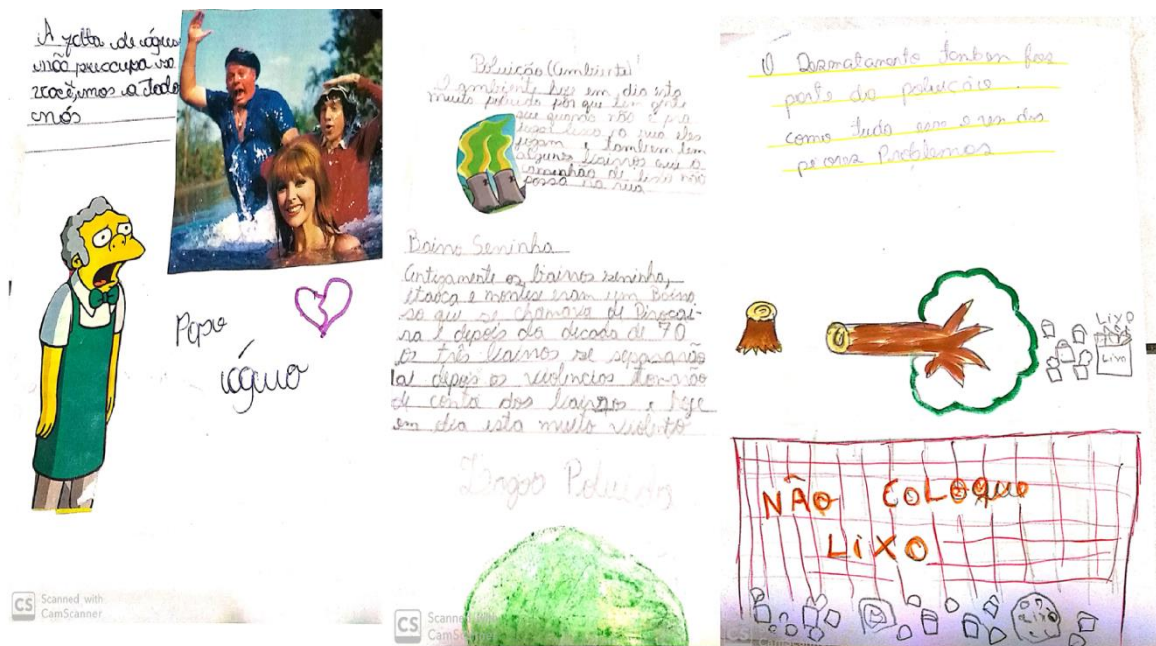 A falta de água
não preocupa so
vocêmos a todo
nós
Popo
água
Scanned with
CamScanner
Poluição (ambiente)
O ambiente hoje em dia esta
muito poluido por que tem gente
que quando não é pra
jogar lixo na rua eles
jogam e tambem tem
alguns bairros que o
caminhão de lixo não
passa na rua
Bairro Seninha
Antigamente os bairros seninha,
itaoca e montese eram um Bairro
so que se chamava de Pirocai-
ra e depois da decada de 70
os três bairros se separarão
lá depois as violencias tomarão
de conta dos bairros e hoje
em dia esta muito violento
Lagoa Poluida
Scanned with
CamScanner
O Desmatamento tanben faz
parte da poluição
como tudo esse e um dos
piores Problemas
LIXO
Lixo
NÃO COLOQUE
LiXO
Lixo
CS